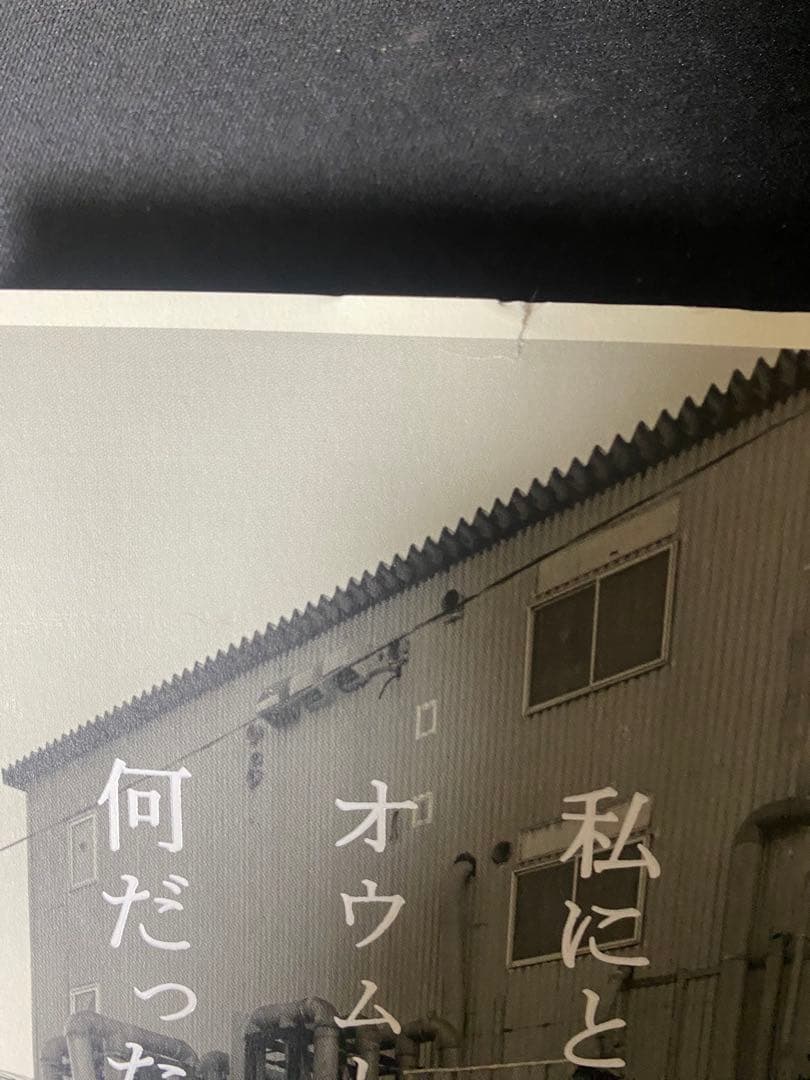 私にと
オウム
何だった